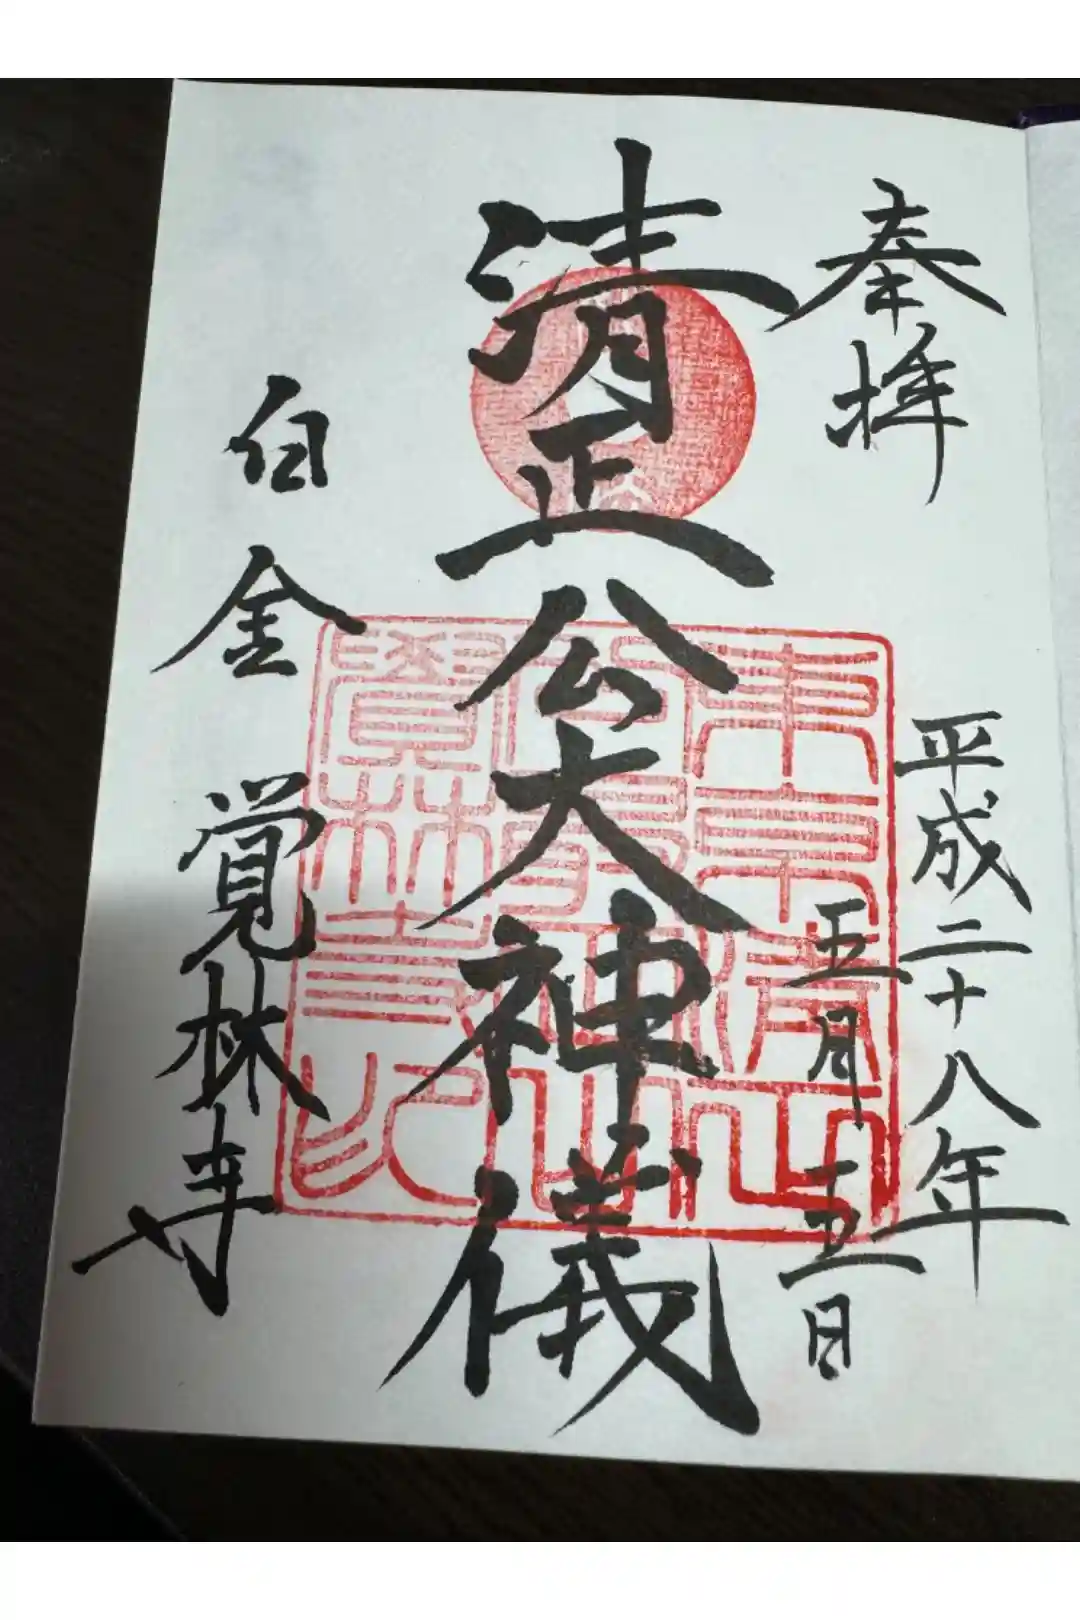 奉拝
平成二十八年
五月五日
清正公大神儀
白金 覚林寺